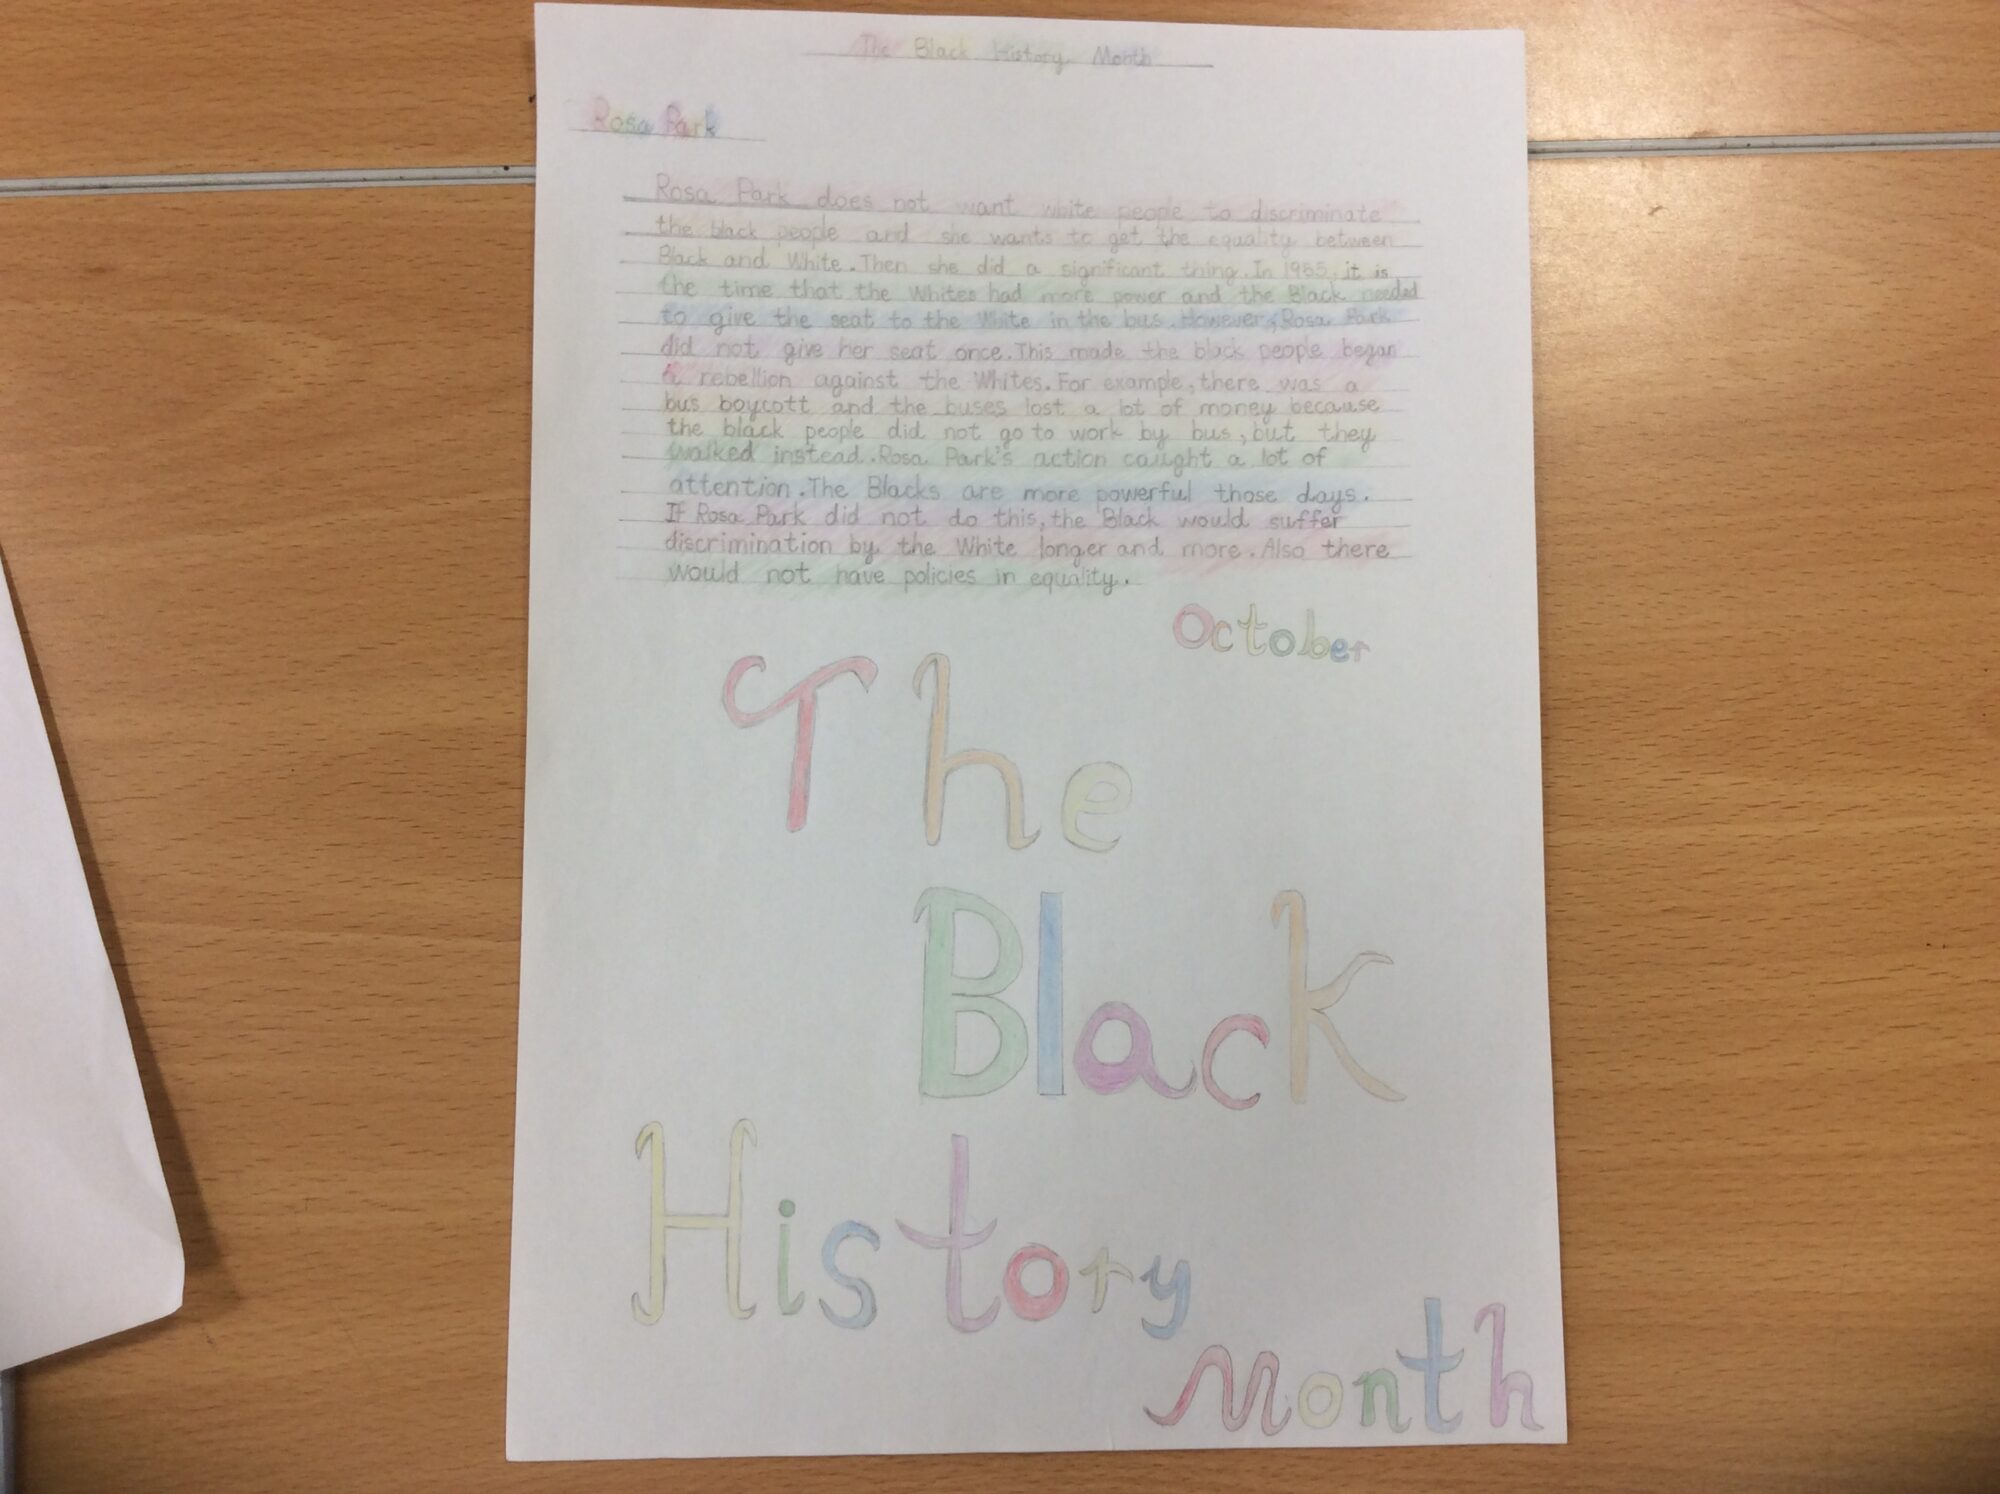 The Black History Month
Rosa Park
Rosa Park does not want white people to discriminate
the black people and she wants to get the equality between
Black and White. Then she did a significant thing. In 1955, it is
the time that the Whites had more power and the Black needed
to give the seat to the White in the bus. However, Rosa Park
did not give her seat once. This made the black people began
a rebellion against the Whites. For example, there was a
bus boycott and the buses lost a lot of money because
the black people did not go to work by bus, but they
walked instead. Rosa Park's action caught a lot of
attention. The Blacks are more powerful those days.
If Rosa Park did not do this, the Black would suffer
discrimination by the White longer and more. Also there
would not have policies in equality.
October
The
Black
History
Month